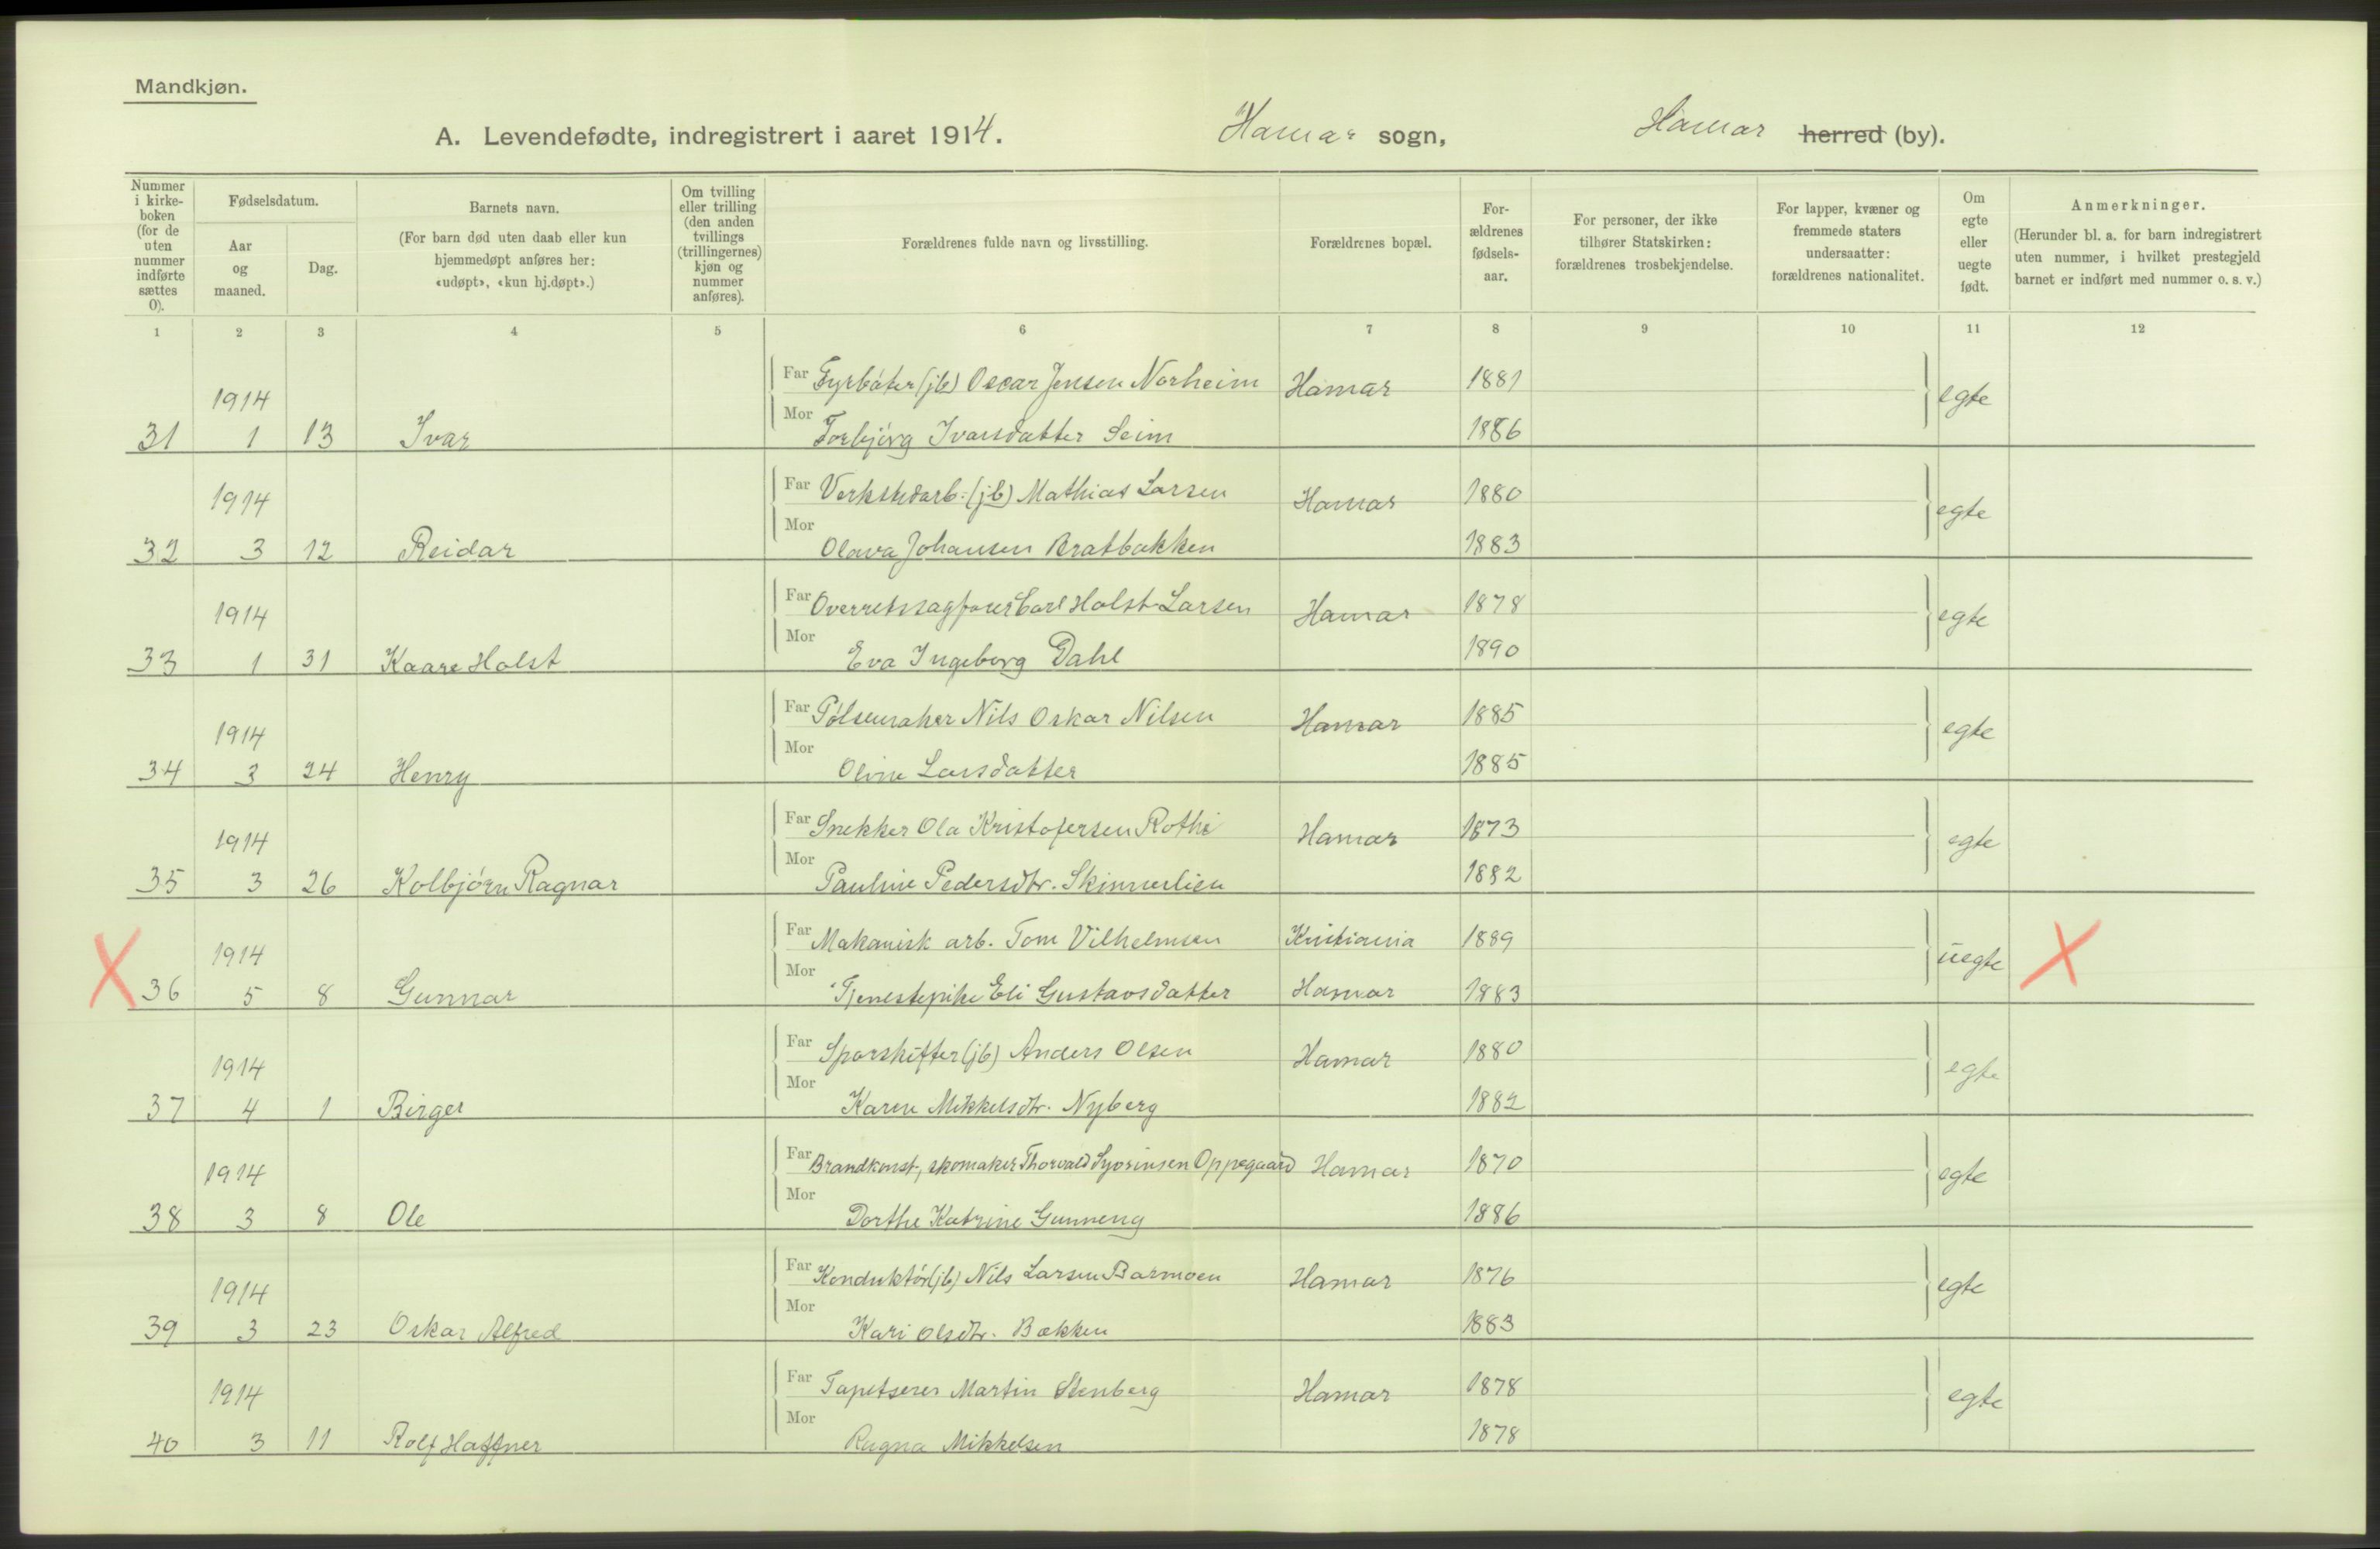 Mandkjøn.
A. Levendefødte, indregistrert i aaret 1914. Hamar sogn, Hamar herred (by).
Nummer i kirke-boken (for de uten nummer indførte sættes 0).
Fødselsdatum.
Aar og maaned.
Dag.
Barnets navn.
(For barn død uten daab eller kun hjemmedøpt anføres her: «udøpt», «kun hj.døpt».)
Om tvilling eller trilling (den anden tvillings (trillingernes) kjøn og nummer anføres).
Forældrenes fulde navn og livsstilling.
Forældrenes bopæl.
For-ældrenes fødsels-aar.
For personer, der ikke tilhører Statskirken: forældrenes trosbekjendelse.
For lapper, kvæner og fremmede staters undersaatter: forældrenes nationalitet.
Om egte eller uegte født.
Anmerkninger.
(Herunder bl. a. for barn indregistrert uten nummer, i hvilket prestegjeld barnet er indført med nummer o. s. v.)
1 2 3 4 5 6 7 8 9 10 11 12
Far Fyrbøter (jb) Oscar Jensen Norheim Hamar 1881
1914 egte
Mor Torbjørg Ivarsdatter Seim 1886
31 1 13 Ivar
Far Verkstedarb: (jb) Mathias Larsen Hamar 1880
1914 egte
Mor Olava Johansen Bratbakken 1883
32 3 12 Reidar
Far Overretssagfører Carl Holst Larsen Hamar 1878
1914 egte
Mor Eva Ingeborg Dahl 1890
33 1 31 Kaare Holst
Far Pølsemaker Nils Oskar Nilsen Hamar 1885
1914 egte
Mor Oline Larsdatter 1885
34 3 24 Henry
Far Snekker Ola Kristofersen Rothe Hamar 1873
1914 egte
Mor Pauline Pedersdtr. Skinnerlien 1882
35 3 26 Kolbjørn Ragnar
Far Mekanisk arb. Tom Vilhelmsen Kristiania 1889
1914 uegte
Mor Tjenestepike Eli Gustavsdatter Hamar 1883
36 5 8 Gunnar
Far Sporskifter (jb) Anders Olsen Hamar 1880
1914 egte
Mor Karen Mikkelsdtr. Nyberg 1882
37 4 1 Birger
Far Brandkonst, skomaker Thorvald Syvrinsen Oppegaard Hamar 1870
1914 egte
Mor Dorthe Katrine Gunneng 1886
38 3 8 Ole
Far Konduktør (jb) Nils Larsen Barmoen Hamar 1876
1914 egte
Mor Kari Olsdtr. Bækken 1883
39 3 23 Oskar Alfred
Far Tapetserer Martin Stenberg Hamar 1878
1914 egte
Mor Ragna Mikkelsen 1878
40 3 11 Rolf Haffner